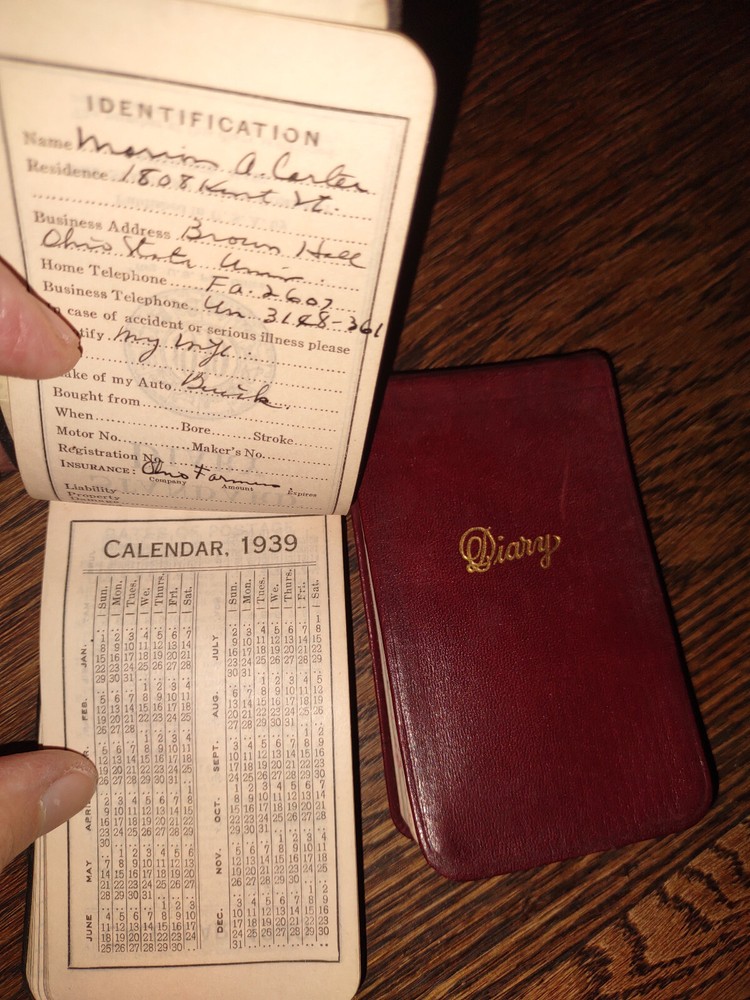 IDENTIFICATION
Name Marion A. Carter
Residence 1808 Kent St.
Business Address Brown Hall
Ohio State Univ.
Home Telephone Fa. 2607
Business Telephone Un. 3148-361
In case of accident or serious illness please
notify My wife
Make of my Auto Buick
Bought from
When Bore Stroke
Motor No. Maker's No.
Registration No.
INSURANCE: Ohio Farmers
Company Amount Expires
Liability
Property
Damage
CALENDAR, 1939
Sun. Mon. Tues. We. Thurs. Fri. Sat.
JAN.
1 2 3 4 5 6 7
8 9 10 11 12 13 14
15 16 17 18 19 20 21
22 23 24 25 26 27 28
29 30 31
FEB.
1 2 3 4
5 6 7 8 9 10 11
12 13 14 15 16 17 18
19 20 21 22 23 24 25
26 27 28
1 2 3 4
5 6 7 8 9 10 11
12 13 14 15 16 17 18
19 20 21 22 23 24 25
26 27 28 29 30 31
APRIL
1
2 3 4 5 6 7 8
9 10 11 12 13 14 15
16 17 18 19 20 21 22
23 24 25 26 27 28 29
30
MAY
1 2 3 4 5 6
7 8 9 10 11 12 13
14 15 16 17 18 19 20
21 22 23 24 25 26 27
28 29 30 31
JUNE
1 2 3
4 5 6 7 8 9 10
11 12 13 14 15 16 17
18 19 20 21 22 23 24
25 26 27 28 29 30
Sun. Mon. Tues. We. Thurs. Fri. Sat.
JULY
1
2 3 4 5 6 7 8
9 10 11 12 13 14 15
16 17 18 19 20 21 22
23 24 25 26 27 28 29
30 31
AUG.
1 2 3 4 5
6 7 8 9 10 11 12
13 14 15 16 17 18 19
20 21 22 23 24 25 26
27 28 29 30 31
SEPT.
1 2
3 4 5 6 7 8 9
10 11 12 13 14 15 16
17 18 19 20 21 22 23
24 25 26 27 28 29 30
OCT.
1 2 3 4 5 6 7
8 9 10 11 12 13 14
15 16 17 18 19 20 21
22 23 24 25 26 27 28
29 30 31
NOV.
1 2 3 4
5 6 7 8 9 10 11
12 13 14 15 16 17 18
19 20 21 22 23 24 25
26 27 28 29 30
DEC.
1 2
3 4 5 6 7 8 9
10 11 12 13 14 15 16
17 18 19 20 21 22 23
24 25 26 27 28 29 30
31
Diary